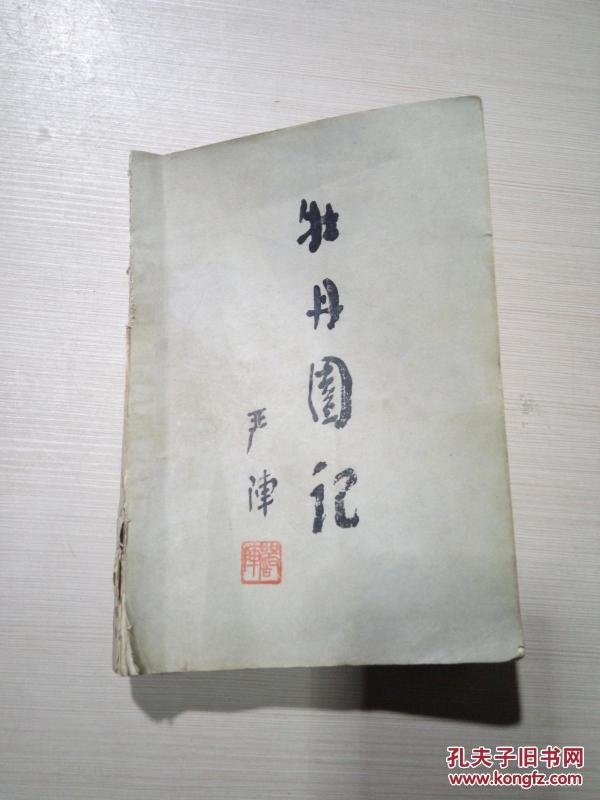 牡丹園记
严陣
嚴陣
孔夫子旧书网
www.kongfz.com